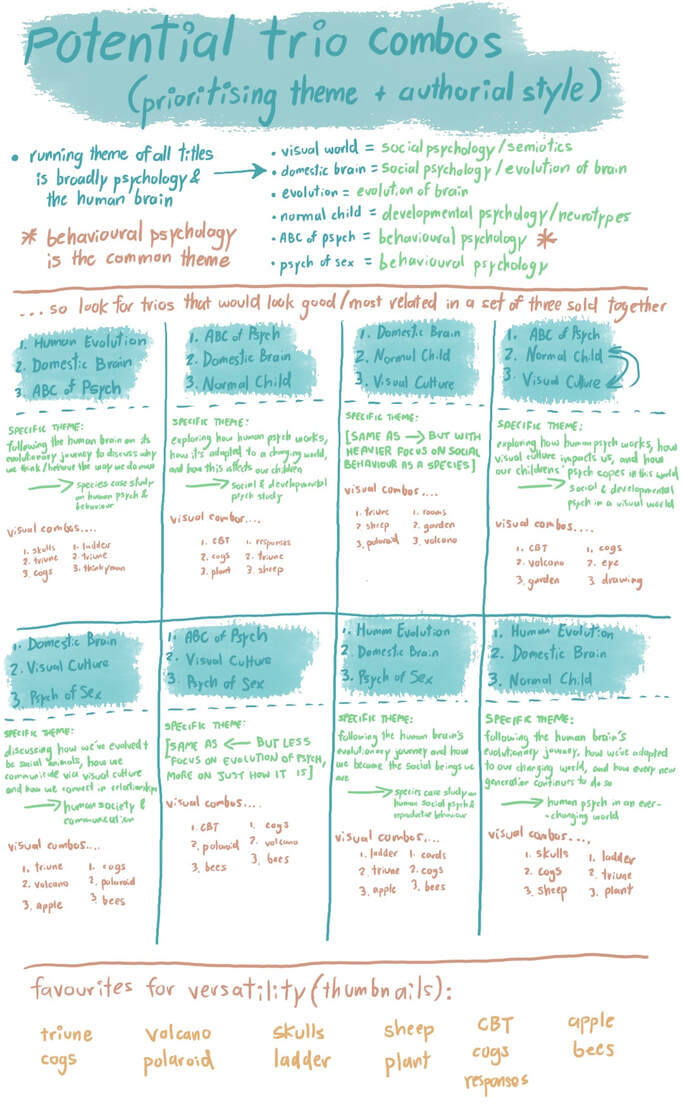 Potential trio combos
(prioritising theme + authorial style)
• running theme of all titles
is broadly psychology &
the human brain
* behavioural psychology
is the common theme
• visual world = social psychology/semiotics
• domestic brain = social psychology/evolution of brain
• evolution = evolution of brain
• normal child = developmental psychology/neurotypes
• ABC of psych = behavioural psychology *
• psych of sex = behavioural psychology
...so look for trios that would look good/most related in a set of three sold together
1. Human Evolution
2. Domestic Brain
3. ABC of Psych
SPECIFIC THEME:
following the human brain on its
evolutionary journey to discuss why
we think/behave the way we do now
→ species case study
on human psych &
behaviour
visual combos....
1. skulls 1. ladder
2. triune 2. triune
3. cogs 3. thinkyman
1. ABC of Psych
2. Domestic Brain
3. Normal Child
SPECIFIC THEME:
exploring how human psych works,
how it's adapted to a changing world,
and how this affects our children
→ social & developmental
psych study
visual combos...
1. CBT 1. responses
2. cogs 2. triune
3. plant 3. sheep
1. Domestic Brain
2. Normal Child
3. Visual Culture
SPECIFIC THEME:
[SAME AS → BUT WITH
HEAVIER FOCUS ON SOCIAL
BEHAVIOUR AS A SPECIES]
visual combos...
1. triune 1. rooms
2. sheep 2. garden
3. polaroid 3. volcano
1. ABC of Psych
2. Normal Child
3. Visual Culture
SPECIFIC THEME:
exploring how human psych works, how
visual culture impacts us, and how
our childrens' psych copes in this world
→ social & developmental
psych in a visual world
visual combos...
1. CBT 1. cogs
2. volcano 2. eye
3. garden 3. drawing
1. Domestic Brain
2. Visual Culture
3. Psych of Sex
SPECIFIC THEME:
discussing how we've evolved t
be social animals, how we
communicate via visual culture
and how we convert in relationships
→ human society &
communication
visual combos....
1. triune 1. cogs
2. volcano 2. polaroid
3. apple 3. bees
1. ABC of Psych
2. Visual Culture
3. Psych of Sex
SPECIFIC THEME:
[SAME AS ← BUT LESS
FOCUS ON EVOLUTION OF PSYCH,
MORE ON JUST HOW IT IS]
visual combos...
1. CBT 1. cogs
2. polaroid 2. volcano
3. bees 3. bees
1. Human Evolution
2. Domestic Brain
3. Psych of Sex
SPECIFIC THEME:
following the human brain's
evolutionary journey and how
we became the social beings we
are
→ species case study on
human social psych &
reproductive behaviour
visual combos....
1. ladder 1. cards
2. triune 2. cogs
3. apple 3. bees
1. Human Evolution
2. Domestic Brain
3. Normal Child
SPECIFIC THEME:
following the human brain's
evolutionary journey, how we've adapted
to our changing world, and how every new
generation continues to do so
→ human psych in an ever-
changing world
visual combos....
1. skulls 1. ladder
2. cogs 2. triune
3. sheep 3. plant
favourites for versatility (thumbnails):
triune volcano skulls sheep CBT apple
cogs polaroid ladder plant cogs bees
responses